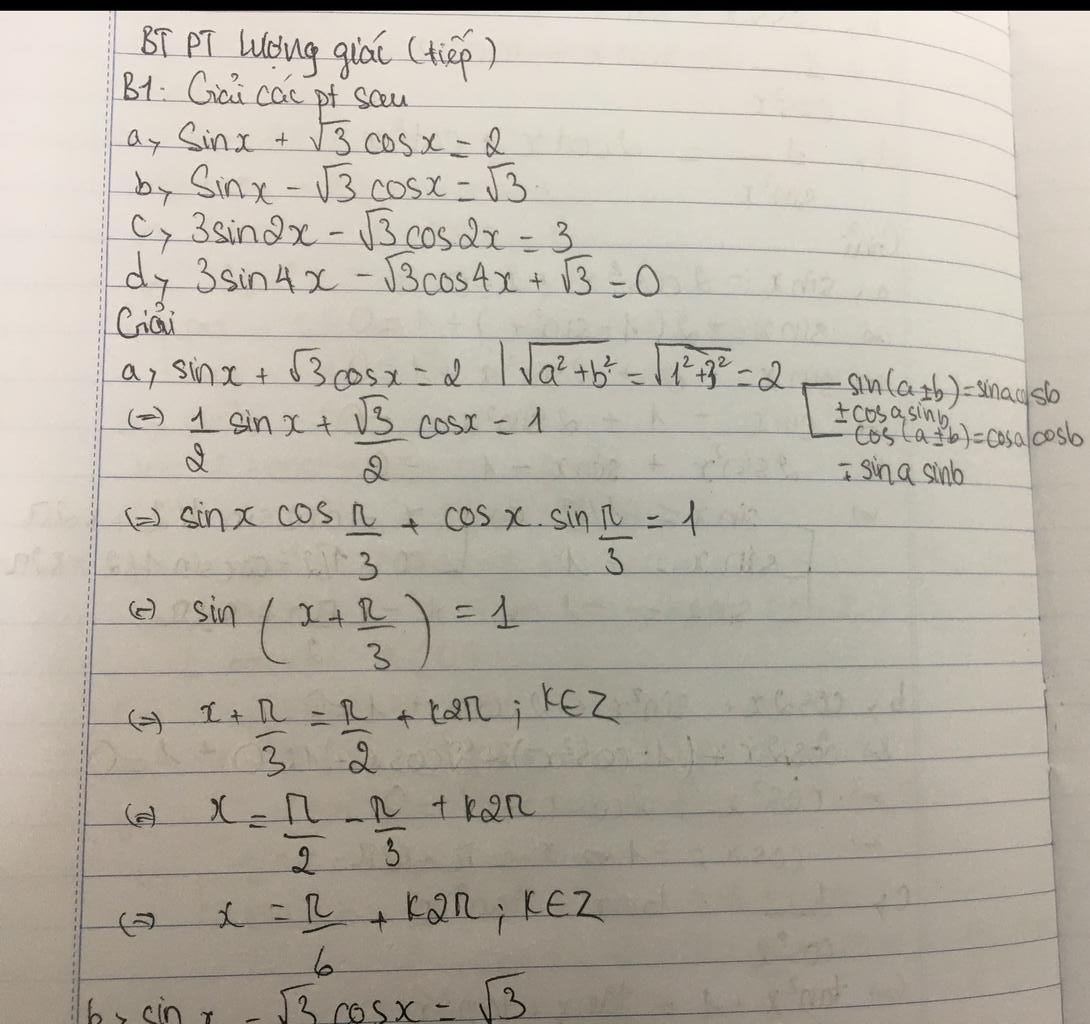 BT PT lượng giác (tiếp)
B1: Giải các pt sau
a, Sinx + √3 cosx = 2
b, Sinx - √3 cosx = √3
c, 3sin2x - √3 cos2x = 3
d, 3sin4x - √3cos4x + √3 = 0
Giải
a, sinx + √3cosx = 2 | √(a² + b²) = √(1² + √3²) = 2
sin(a ± b) = sina cosb
± cosa sinb
cos(a ± b) = cosa cosb
∓ sina sinb
(=) 1/2 sinx + √3/2 cosx = 1
(=) sinx cos π/3 + cosx . sin π/3 = 1
(=) sin (x + π/3) = 1
(=) x + π/3 = π/2 + k2π ; k∈Z
(=) x = π/2 - π/3 + k2π
(=) x = π/6 + k2π ; k∈Z
b, sinx - √3 cosx = √3